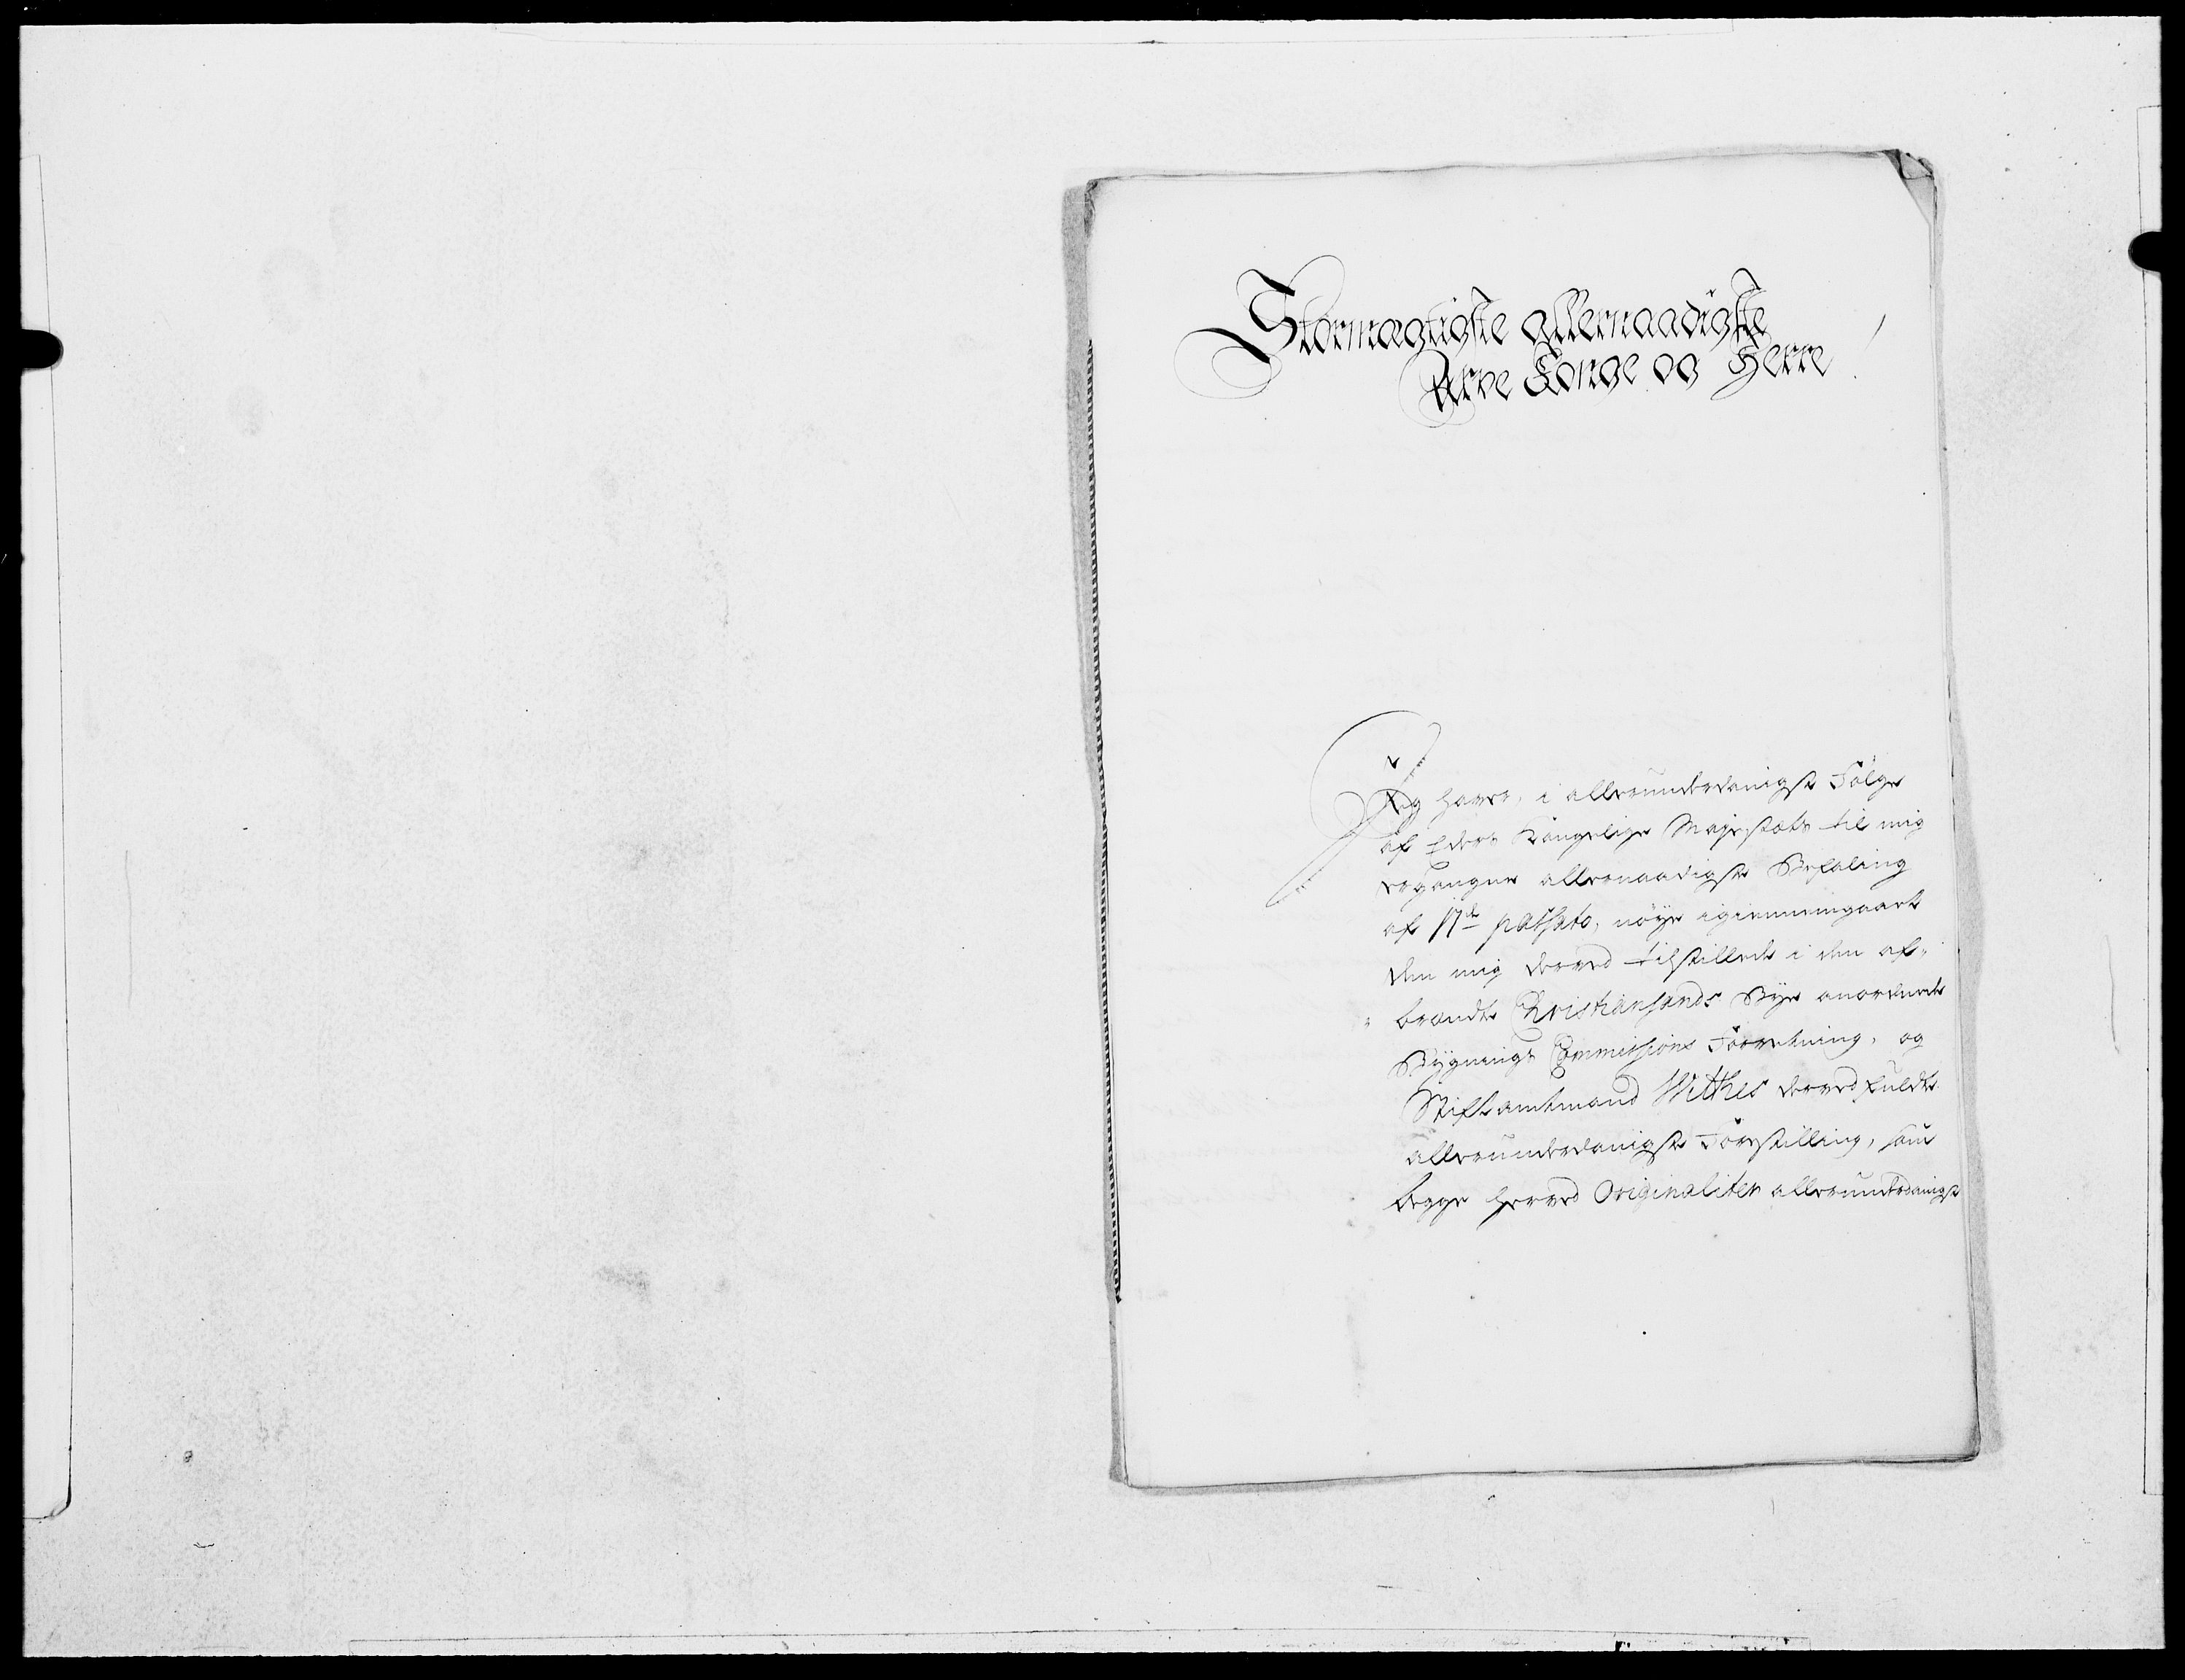 Stormægtigste allernaadigste
Arve Konge og Herre
Jeg haver, i allerunderdanigst Følge
af Eders Kongelige Majestæts til mig
ergangne allernaadigste Befaling
af 17de passato, nøye igiennemgaaet
den mig derved tilstillede i den af-
brændte Christiansands Bye anordnede
Bygnings Commissions Forretning, og
Stiftamtmand Withes derved fuldte
allerunderdanigste Forestilling, som
begge herved Originaliter allerunderdanigst